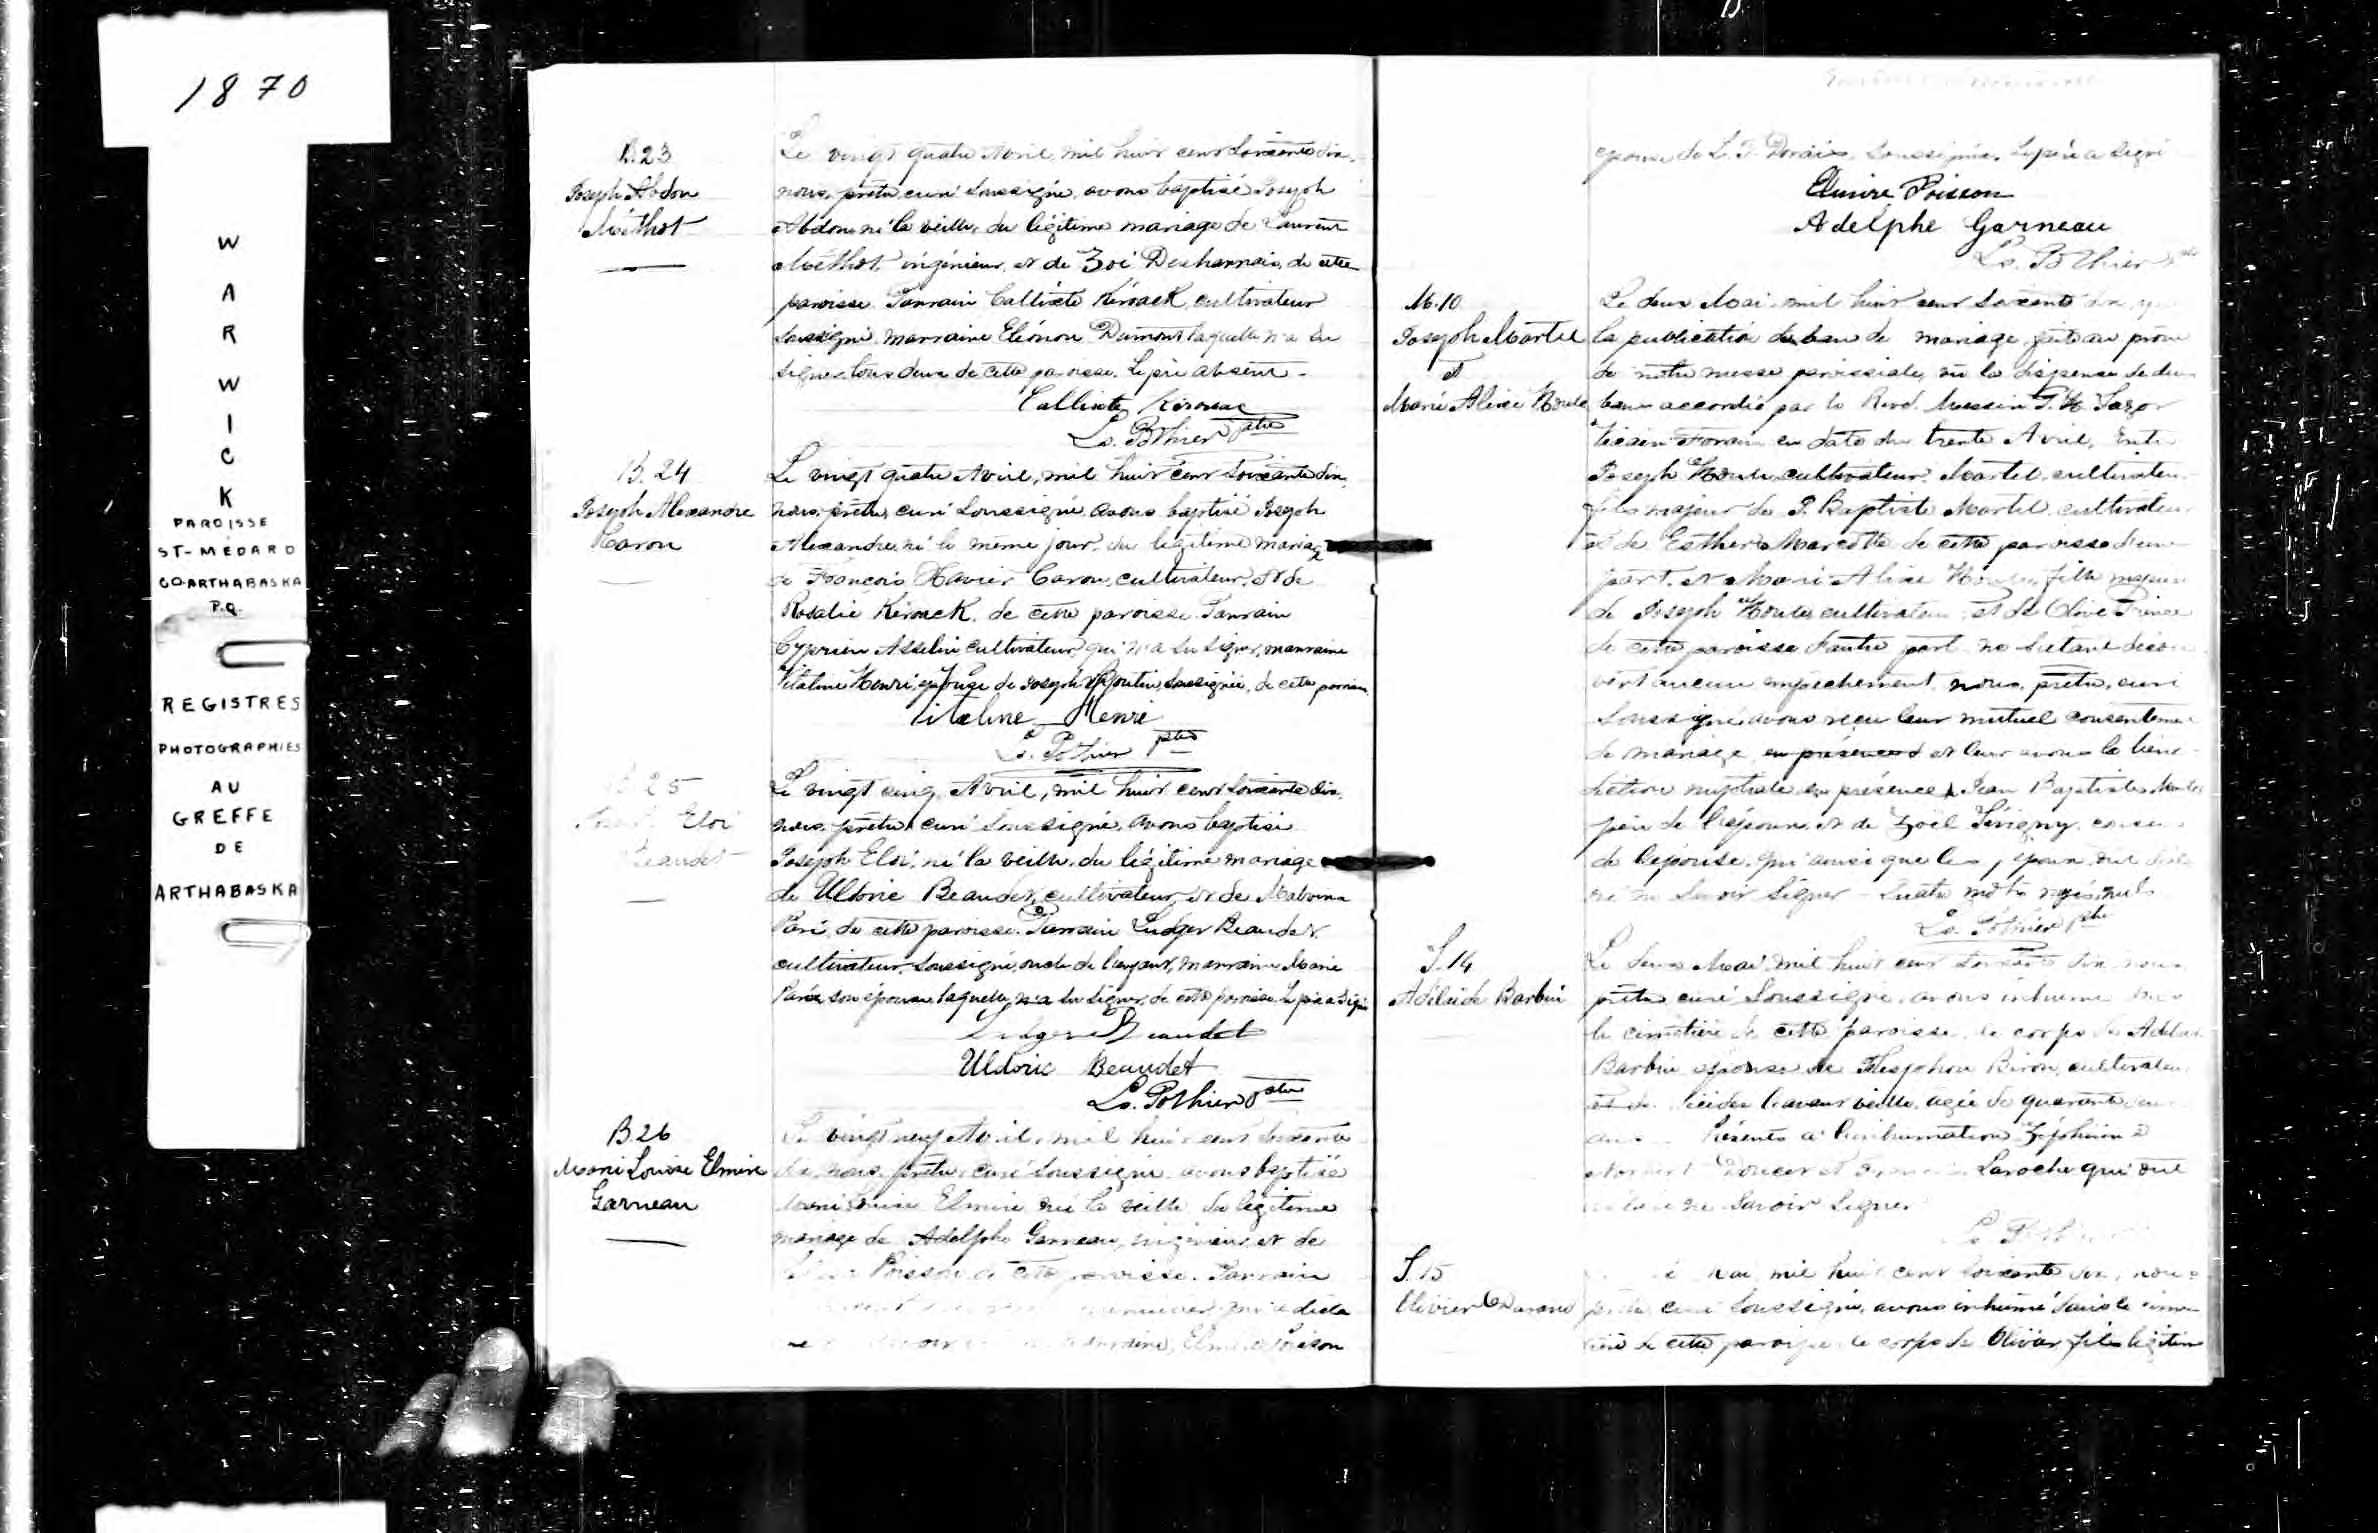 1870
WARWICK
PAROISSE
ST-MÉDARD
CO-ARTHABASKA
P.Q.
REGISTRES
PHOTOGRAPHIES
AU
GREFFE
DE
ARTHABASKA
B.23
Joseph Abdon
Méthot
Le vingt quatre Avril, mil huit cent soixante dix,
nous, prêtre, curé soussigné, avons baptisé Joseph
Abdon né la veille, du légitime mariage de Laurent
Méthot, ingénieur, et de Zoé Desharnais, de cette
paroisse. Parrain Callixte Kéroack, cultivateur
soussigné, marraine Eléonore Dumont laquelle n'a su
signer, tous deux de cette paroisse. Le père absent.
Callixte Kirouac
Ls. Pothier ptre
B.24
Joseph Alexandre
Caron
Le vingt quatre Avril, mil huit cent soixante dix,
nous, prêtre, curé soussigné, avons baptisé Joseph
Alexandre, né le même jour, du légitime mariage
de François Xavier Caron, cultivateur, et de
Rosalie Kéroack, de cette paroisse. Parrain
Cyprien Asselin cultivateur, qui n'a su signer, marraine
Vitaline Henri, épouse de Joseph Poutin, soussignée, de cette paroisse.
Vitaline Henri
Ls. Pothier ptre
B 25
Eloi
Beaudet
Le vingt cinq Avril, mil huit cent soixante dix,
nous, prêtre, curé soussigné, avons baptisé
Joseph Eloi, né la veille, du légitime mariage
de Uldoric Beaudet, cultivateur, et de Malvina
Paré, de cette paroisse. Parrain Ludger Beaudet
cultivateur, soussigné, oncle de l'enfant, marraine Marie
Paré, son épouse, laquelle n'a su signer, de cette paroisse. Le père a signé
Ludger Beaudet
Uldoric Beaudet
Ls. Pothier ptre
B.26
Marie Louise Elmire
Garneau
Le vingt neuf Avril, mil huit cent soixante
dix, nous, prêtre, curé soussigné, avons baptisé
Marie Louise Elmire née la veille du légitime
mariage de Adelphe Garneau, ingénieur, et de
Poisson de cette paroisse. Parrain
qui a déclaré
marraine, Elmire Poisson
épouse de L. T. Dorais, soussignée. Le père a signé
Elmire Poisson
Adelphe Garneau
Ls. Pothier ptre
M.10
Joseph Martel
et
Marie Aline Houle
Le deux Mai, mil huit cent soixante dix,
la publication de ban de mariage faite au prône
de notre messe paroissiale, vu la dispense de deux
bans accordée par le Revd. Messire
Vicaire Forain en date du trente Avril, Entre
Joseph Houle cultivateur Martel, cultivateur
fils majeur de J. Baptiste Martel, cultivateur
et de Esther Marcotte de cette paroisse d'une
part, et Marie Aline Houle, fille majeure
de Joseph Houle, cultivateur, et de Olive Prince
de cette paroisse d'autre part, ne s'étant décou
vert aucun empêchement, nous, prêtre, curé
soussigné, avons reçu leur mutuel consentement
de mariage en présence d et leur avons la béné
diction nuptiale en présence de Jean Baptiste Martel
père de l'époux, et de Zoël Sévigny, cousin
de l'épouse, qui ainsi que les époux ont décla
ré ne savoir signer - quatre mots rayés nuls
Ls. Pothier ptre
S.14
Adélaïde Barbin
Le deux Mai, mil huit cent soixante dix, nous
prêtre curé soussigné, avons inhumé dans
le cimetière de cette paroisse, le corps de Adélaïde
Barbin, épouse de Télesphore Biron, cultivateur,
décédée l'avant veille, agée de quarante deux
ans. Présents à l'inhumation Zéphirin
Doucet et Laroche qui ont
ne savoir signer
S.15
Olivier Durand
Mai, mil huit cent soixante dix, nous
prêtre, curé soussigné, avons inhumé dans le cime
tière de cette paroisse le corps de Olivier, fils légitime